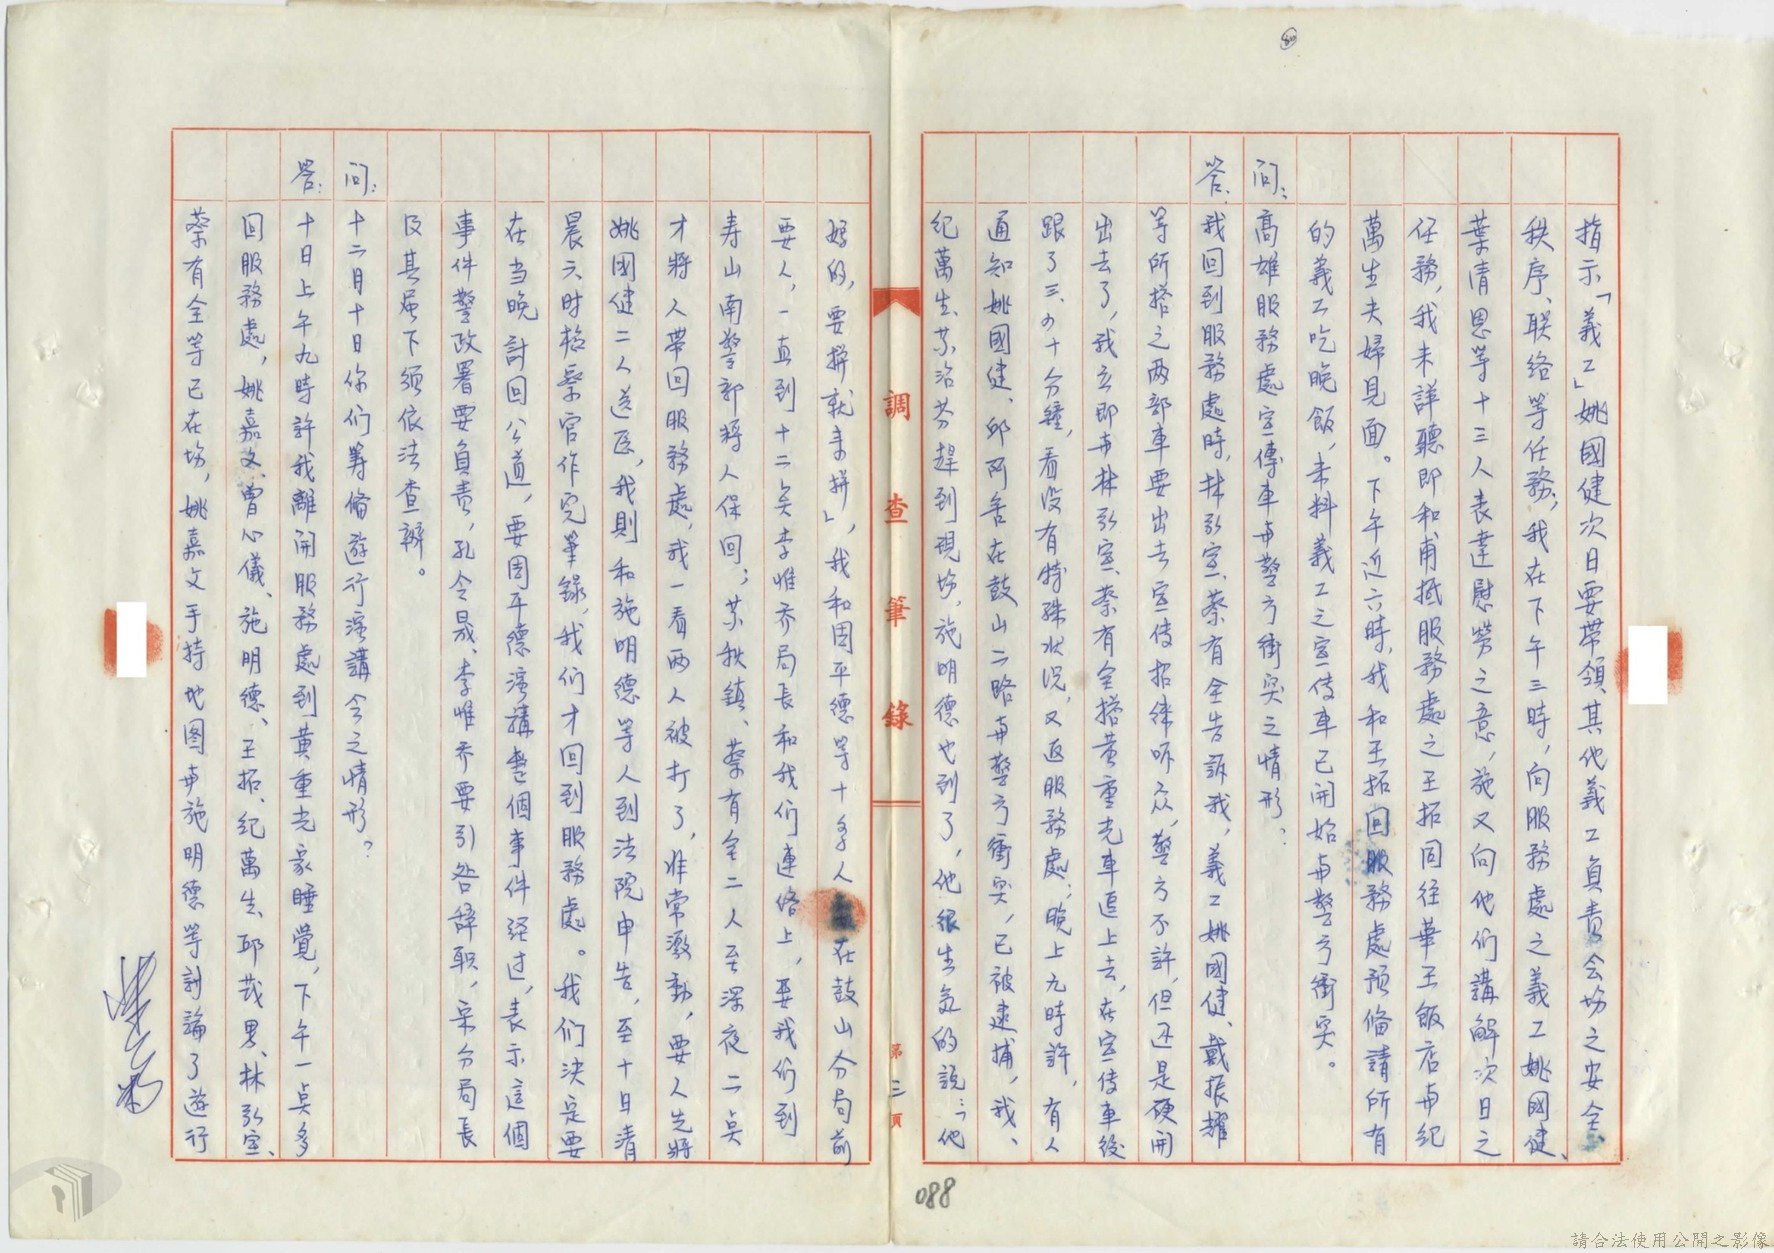 指示「義工」姚國健次日要帶領其他義工負責会场之安全、
秩序、联络等任務，我在下午三時，向服務處之義工姚國健、
葉清恩等十三人表達慰勞之意，施又向他們講解次日之
任務，我未詳聽即和甫抵服務處之王拓同往華王飯店与紀
萬生夫婦見面。下午近六時，我和王拓回服務處預備請所有
的義工吃晚飯，未料義工之宣传車已開始与警方衝突。
问：高雄服務處宣傳車与警方衝突之情形？
答：我回到服務處時，林弘宣、蔡有全告訴我，義工姚國健、戴振耀
等所搭之两部車要出去宣传招徠听众，警方不許，但还是硬開
出去了，我立即与林弘宣、蔡有全搭黄重光車追上去，在宣传車後
跟了三、四十分鐘，看没有特殊状况，又返服務處；晚上九時許，有人
通知姚國健、邱阿舍在鼓山二路与警方衝突，已被逮捕，我、
紀萬生、苏治芬趕到現场，施明德也到了，他很生氣的說：「他
媽的，要拼就来拼」，我和周平德等十多人在鼓山分局前
要人，一直到十二点李惟乔局長和我们連络上，要我们到
寿山南警部將人保回；苏秋鎮、蔡有全二人至深夜二点
才將人帶回服務處，我一看两人被打了，非常激動，要人先將
姚國健二人送医，我則和施明德等人到法院申告，至十日清
晨六时檢察官作完筆録，我们才回到服務處。我们決定要
在当晚討回公道，要周平德演講整個事件经过，表示這個
事件警政署要負責，孔令晟、李惟乔要引咎辞职，宋分局長
及其屬下须依法查辦。
问：十二月十日你们筹備遊行演講会之情形？
答：十日上午九時許我離開服務處到黄重光家睡覺，下午一点多
回服務處，姚嘉文、曾心儀、施明德、王拓、紀萬生、邱茂男、林弘宣、
蔡有全等已在场，姚嘉文手持地图与施明德等討論了遊行
調查筆錄
第三頁
088
請合法使用公開之影像